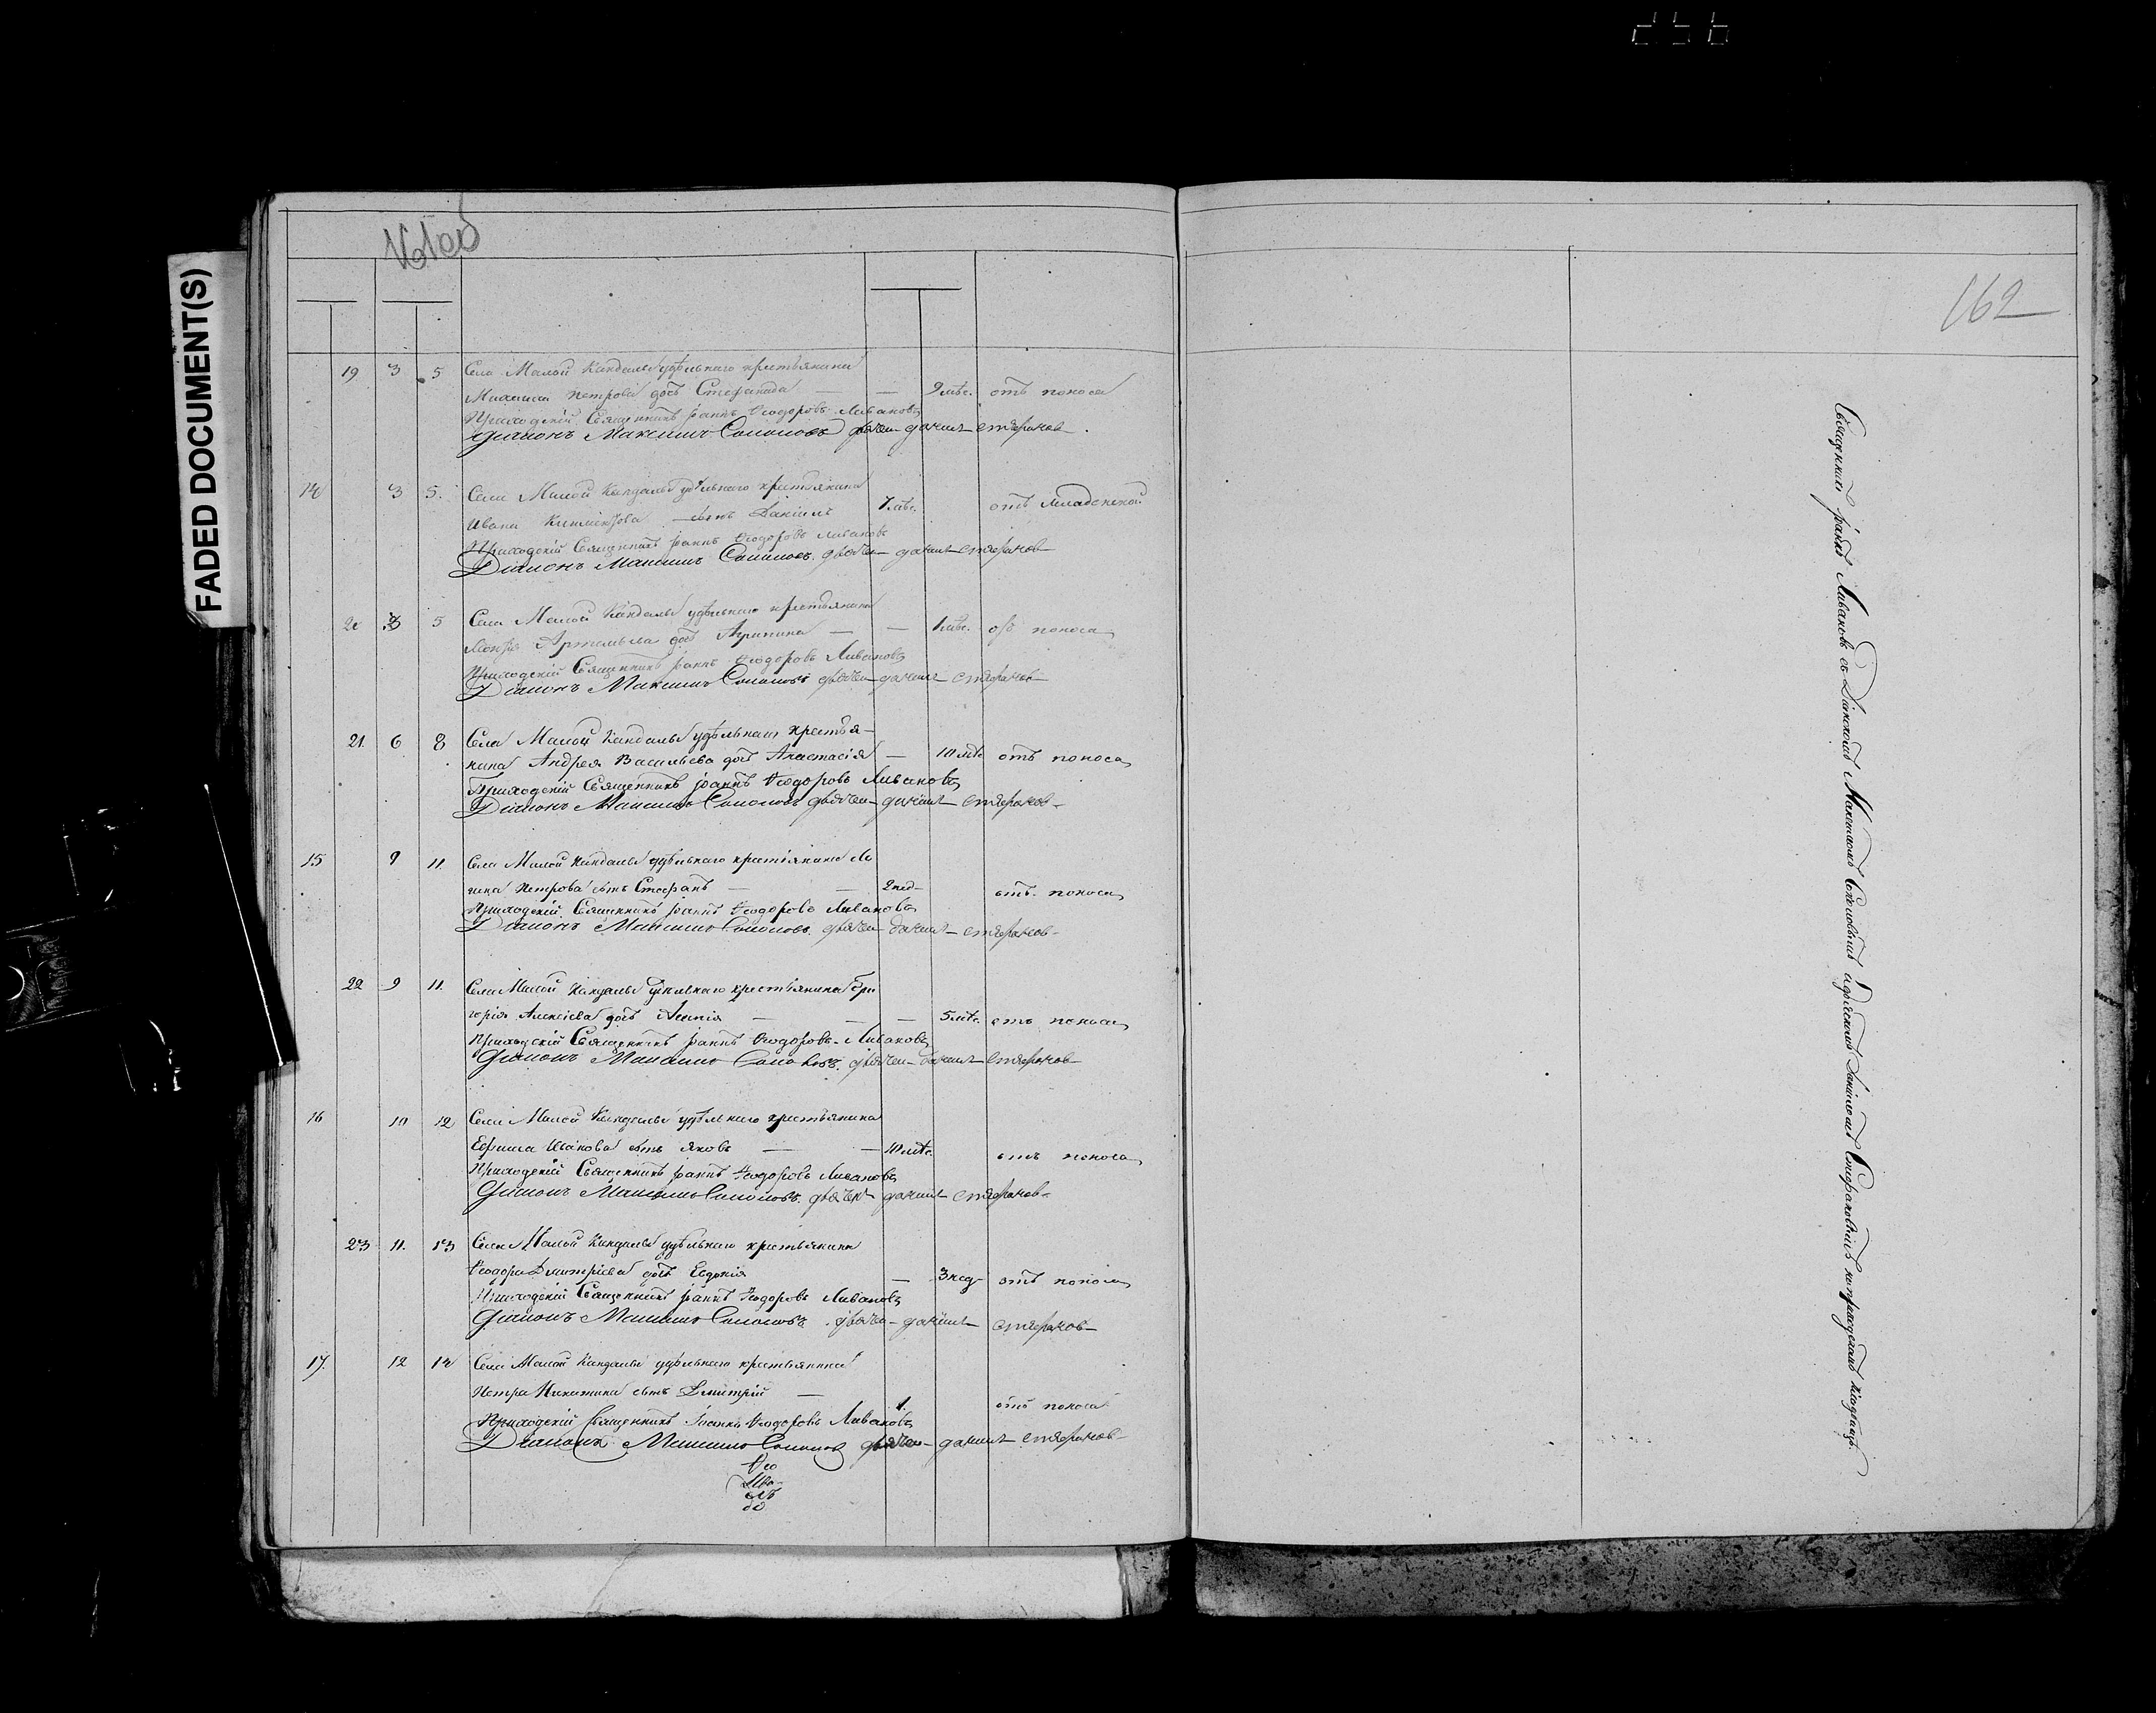 FADED DOCUMENT(S)
162
19 3 5 Села Малой Кандалы удѣльнаго крестьянина
Михаила Петрова дочь Стефанида — — 9 мѣс. отъ поноса
Приходскій Священникъ Іоаннъ Ѳеодоровъ Ливановъ
Діаконъ Максимъ Соколовъ дьячекъ Данiилъ Стефановъ
14 3 5. Села Малой Кандалы удѣльнаго крестьянина
Ивана сынъ Даніилъ 7 мѣс. отъ младенской
Приходскій Священникъ Іоаннъ Ѳеодоровъ Ливановъ
Діаконъ Максимъ Соколовъ дьячекъ Данiилъ Стефановъ
20 3 5 Села Малой Кандалы удѣльнаго крестьянина
Артемьева дочь Агрипина — — 1 мѣс. отъ поноса
Приходскій Священникъ Іоаннъ Ѳеодоровъ Ливановъ
Діаконъ Максимъ Соколовъ дьячекъ Данiилъ Стефановъ
21. 6 8 Села Малой Кандалы удѣльнаго крестья-
нина Андрея Васильева дочь Анастасія — 10 мѣс. отъ поноса
Приходскій Священникъ Іоаннъ Ѳеодоровъ Ливановъ
Діаконъ Максимъ Соколовъ дьячекъ Данiилъ Стефановъ
15 9 11. Села Малой Кандалы удѣльнаго крестьянина Ло
гина Петрова сынъ Стефанъ — — 2 нед- отъ поноса
Приходскій Священникъ Іоаннъ Ѳеодоровъ Ливановъ
Діаконъ Максимъ Соколовъ дьячекъ Данiилъ Стефановъ
22 9 11. Села Малой Кандалы удѣльнаго крестьянина Гри
горія Алексѣева дочь — — — 5 мѣс. отъ поноса
Приходскій Священникъ Іоаннъ Ѳеодоровъ Ливановъ
Діаконъ Максимъ Соколовъ. дьячекъ Данiилъ Стефановъ
16 10 12 Села Малой Кандалы удѣльнаго крестьянина
Ефима Исакова сынъ Яковъ — — 10 мѣс. отъ поноса
Приходскій Священникъ Іоаннъ Ѳеодоровъ Ливановъ
Діаконъ Максимъ Соколовъ. дьячекъ Данiилъ Стефановъ
23 11. 13 Села Малой Кандалы удѣльнаго крестьянина
Ѳеодора Дмитріева дочь Евдокія — 3 нед- отъ поноса
Приходскій Священникъ Іоаннъ Ѳеодоровъ Ливановъ
Діаконъ Максимъ Соколовъ. дьячекъ Данiилъ Стефановъ
17. 12 14 Села Малой Кандалы удѣльнаго крестьянина
Петра Никитина сынъ Дмитрій — 1. отъ поноса
Приходскій Священникъ Іоаннъ Ѳеодоровъ Ливановъ
Діаконъ Максимъ Соколовъ дьячекъ Данiилъ Стефановъ
Священникъ Іоаннъ Ливановъ съ Діакономъ Максимомъ Соколовымъ и дьячкомъ Даніиломъ Стефановымъ на приходскомъ кладбищѣ.